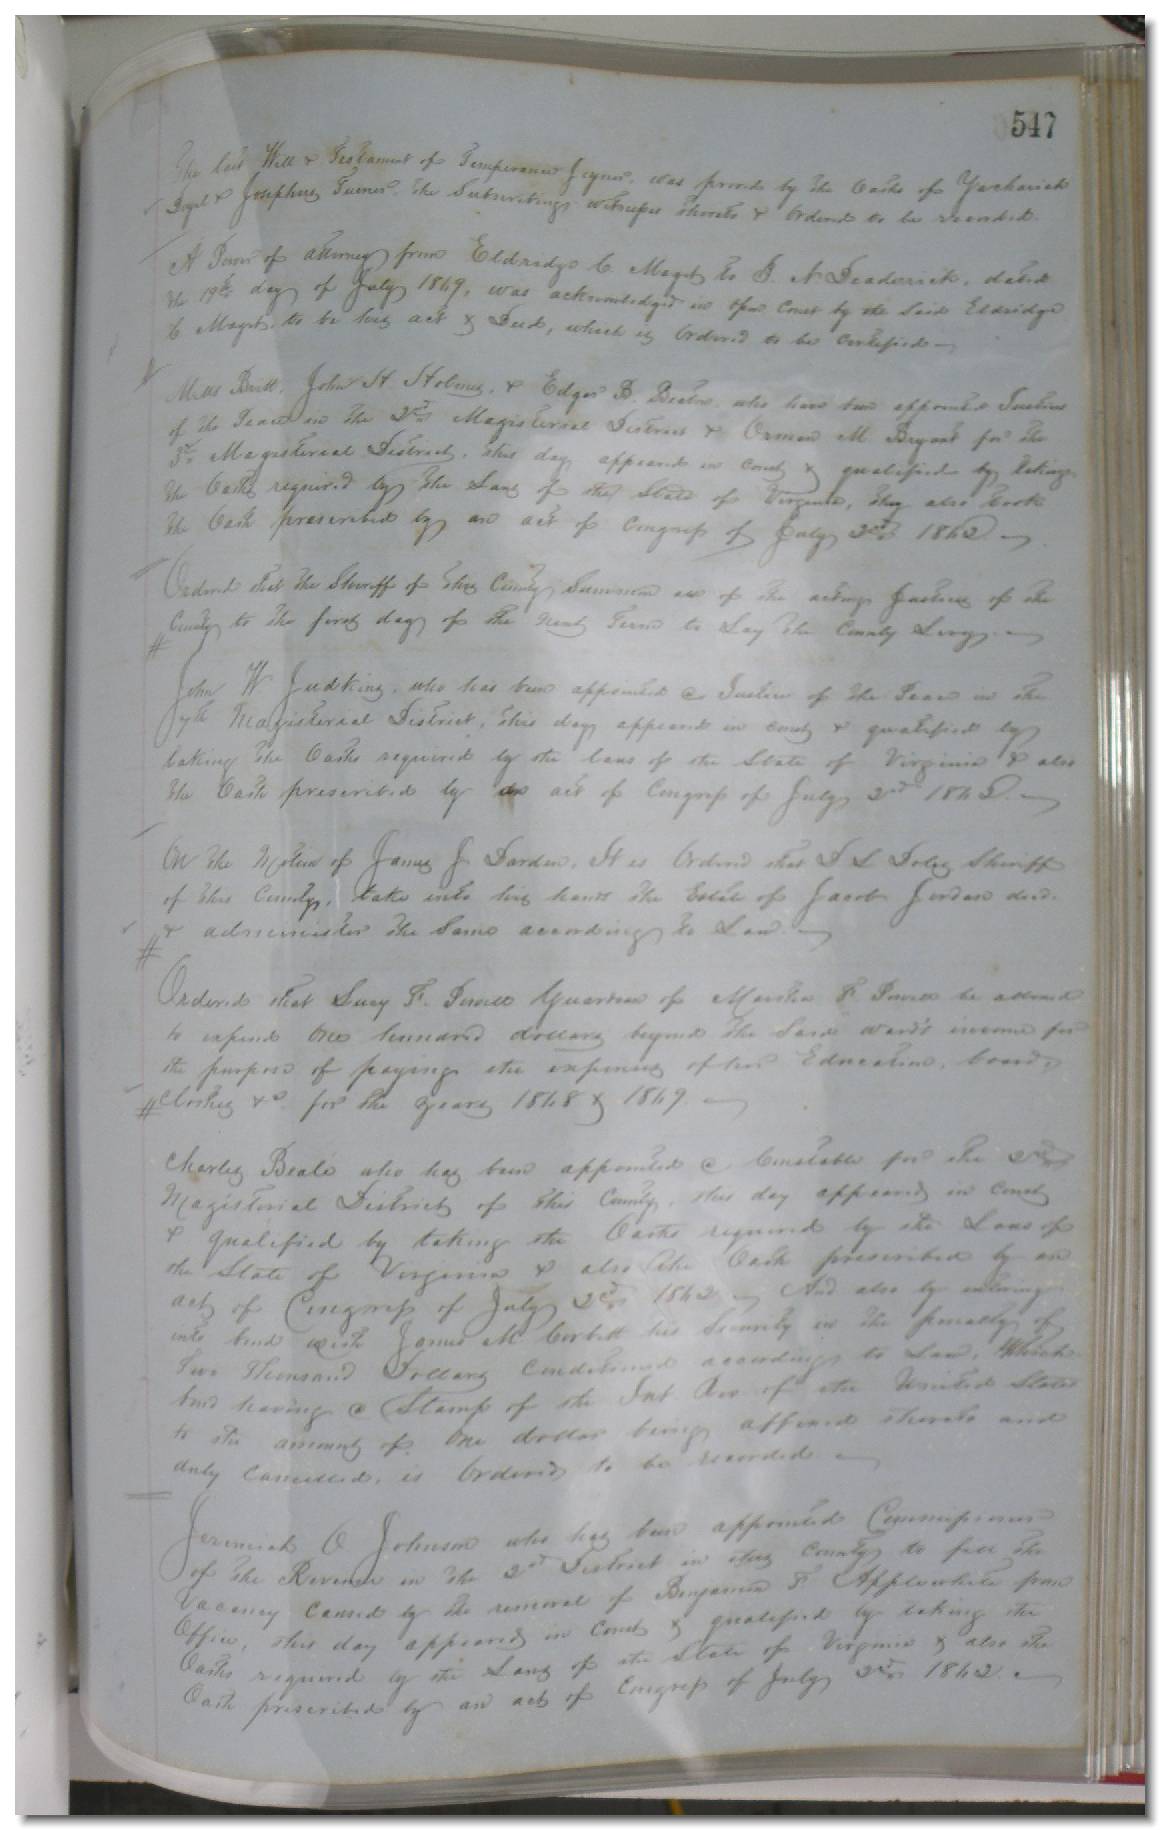 547
The last Will & Testament of Temperance Joyner, was proved by the Oaths of Zachariah
Boyd & Josephus Turner, the Subscribing witnesses thereto & Ordered to be recorded.
A Power of attorney from Eldridge C Magett to J. N Deaderick, dated
the 19th day of July 1869, was acknowledged in open Court by the Said Eldridge
C Magett, to be his act & Deed, which is Ordered to be Certified
Mills Britt, John H. Holmes, & Edgar B. Beaton, who have been appointed Justices
of the Peace in the 2nd Magisterial District & Orman M. Bryant for the
3rd Magisterial District, this day appeared in Court & qualified by taking
the Oaths required by the Laws of the State of Virginia, they also took
the Oath prescribed by an act of Congress of July 2nd 1862
Ordered that the Sheriff of this County Summon all of the acting Justices of the
County to the first day of the Next Term to Lay the County Levy.
John W Judkins, who has been appointed a Justice of the Peace in the
7th Magisterial District, this day appeared in Court & qualified by
taking the Oaths required by the laws of the State of Virginia & also
the Oath prescribed by an act of Congress of July 2nd 1862.
On the Motion of James J Darden, It is Ordered that D L Doles Sheriff
of this County, take into his hands the Estate of Jacob Jordan decd.
& administer the Same according to Law.
Ordered that Lucy F. Powell Guardian of Martha F Powell be allowed
to expend One hundred dollars beyond the Said ward's income for
the purpose of paying the expenses of her Education, board,
Clothes &c for the years 1868 & 1869.
Charles Beale who has been appointed a Constable for the 2nd
Magisterial District of this County, this day appeared in Court
& qualified by taking the Oaths required by the Laws of
the State of Virginia & also the Oath prescribed by an
act of Congress of July 2nd 1862 And also by entering
into bond with James M Corbitt his Security in the penalty of
Two Thousand Dollars Conditioned according to Law, Which
bond having a Stamp of the Int Rev of the United States
to the amount of One dollar being affixed thereto and
duly Cancelled, is Ordered to be recorded
Jeremiah O Johnson who has been appointed Commissioner
of the Revenue in the 2nd District in this County to fill the
Vacancy Caused by the removal of Benjamin F Applewhite from
Office, this day appeared in Court & qualified by taking the
Oaths required by the Laws of the State of Virginia & also the
Oath prescribed by an act of Congress of July 2nd 1862.